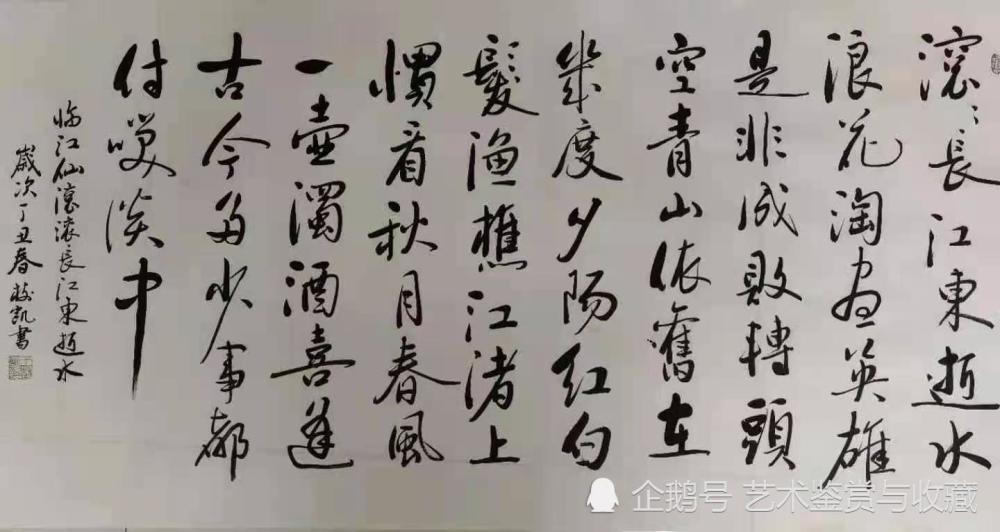 滾〻長江東逝水
浪花淘盡英雄
是非成敗轉頭
空青山依舊在
幾度夕陽紅白
髮漁樵江渚上
慣看秋月春風
一壺濁酒喜逢
古今多少事都
付笑談中
臨江仙滾滾長江東逝水
歲次丁丑春 凱書
企鹅号 艺术鉴赏与收藏